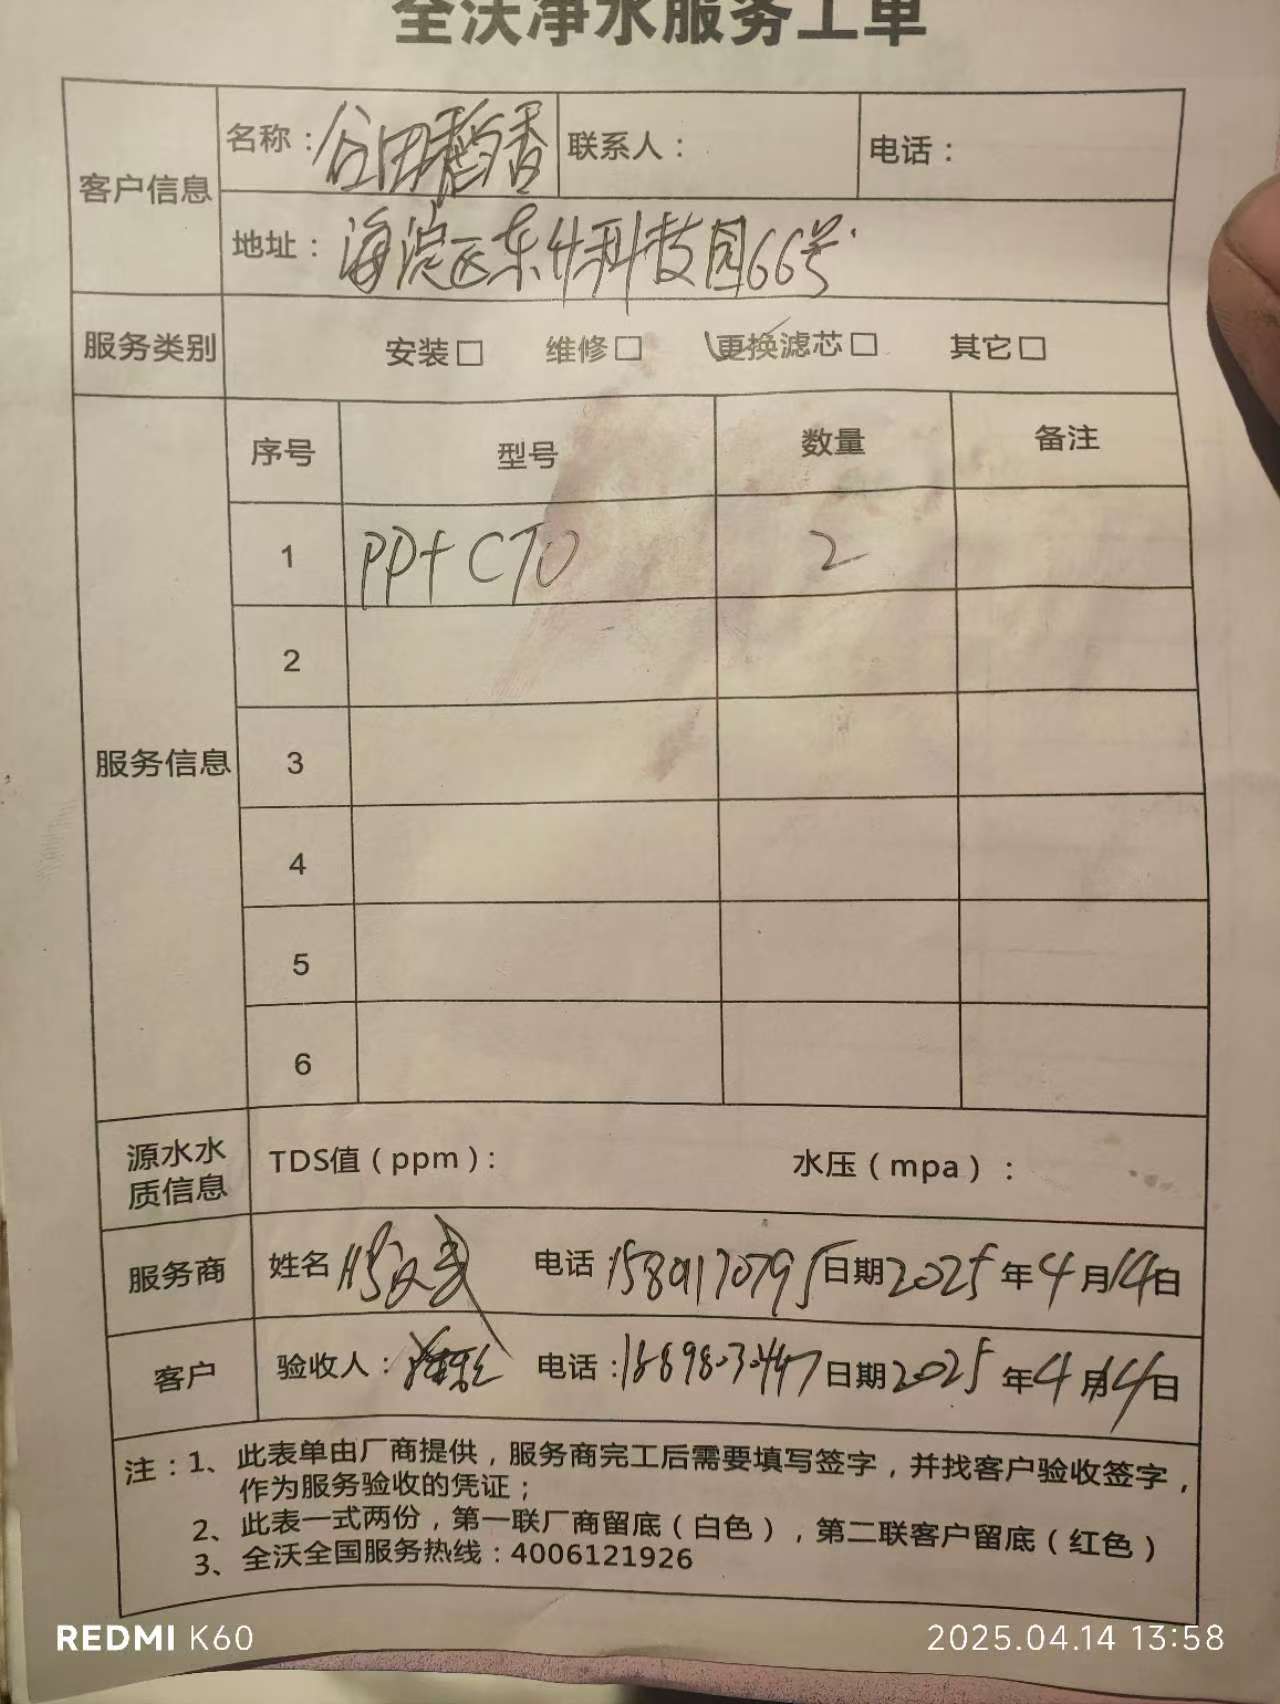 全沃净水服务工单
客户信息 名称：谷田稻香 联系人： 电话：
地址：海淀区东升科技园66号
服务类别 安装□ 维修□ 更换滤芯□ 其它□
服务信息 序号 型号 数量 备注
1 PP+CTO 2
2
3
4
5
6
源水水质信息 TDS值（ppm）： 水压（mpa）：
服务商 姓名 电话 15801170795 日期 2025年4月14日
客户 验收人： 电话： 日期 2025年4月14日
注：1、此表单由厂商提供，服务商完工后需要填写签字，并找客户验收签字，
作为服务验收的凭证；
2、此表一式两份，第一联厂商留底（白色），第二联客户留底（红色）
3、全沃全国服务热线：4006121926
REDMI K60 2025.04.14 13:58